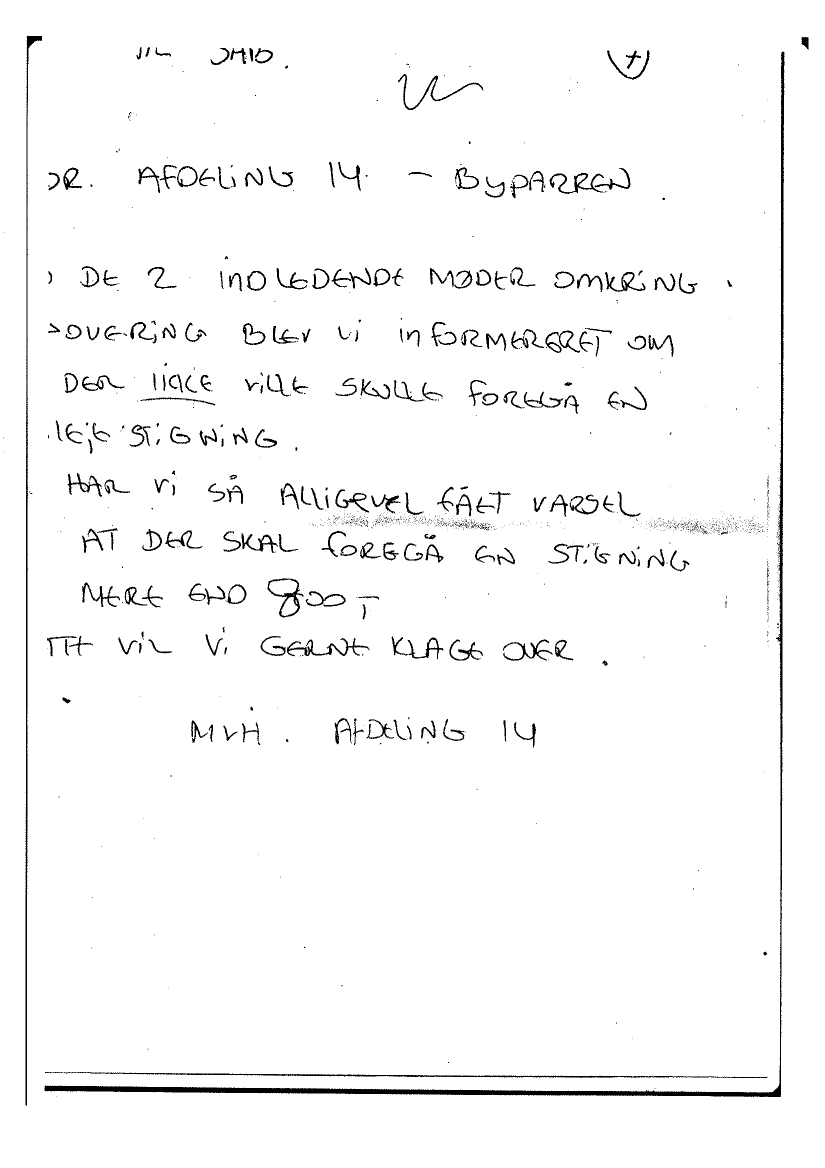 AFDELING 14 - BYPARREN.
DE 2 INDLEDENDE MØDER OMKRING
BLEV VI INFORMERERET OM
DER VILLE SKULLE FOREGÅ EN
LEJE STIGNING.
HAR VI SÅ ALLIGEVEL FÅET VARSEL
AT DER SKAL FOREGÅ EN STIGNING
MERE END 800
VIL VI GERNE KLAGE OVER.
MVH. AFDELING 14